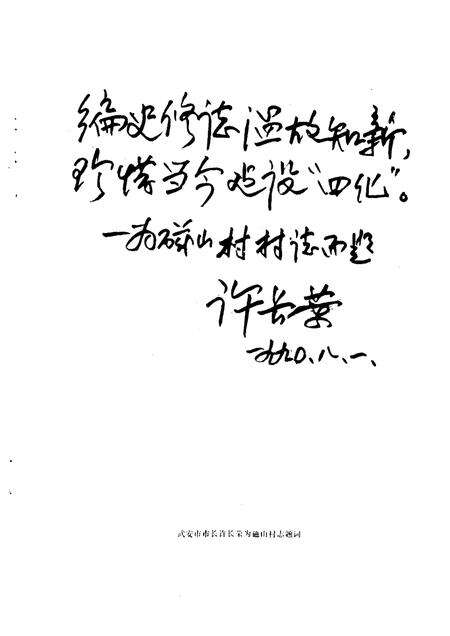 编史修誌温故知新，
珍惜当今建设“四化”。
一为磁山村村誌而题
许长荣
一九九〇.八.一.
武安市市长许长荣为磁山村志题词